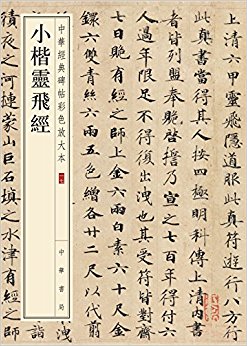 小楷靈飛經
中華經典碑帖彩色放大本
中華書局
上六甲靈飛隱道服此真符遊行八方行
書當得其人按四極明科傳上清內書
皆列盟奉贄啓誓乃宣之七百年得付六
人過年限足不得復出泄也其受符皆對齋
有經之師上金六兩白素六十尺金
鐶六雙青絲六兩五色繒各廿二尺以代
積夜之河運蒙山巨石填之水津有經之